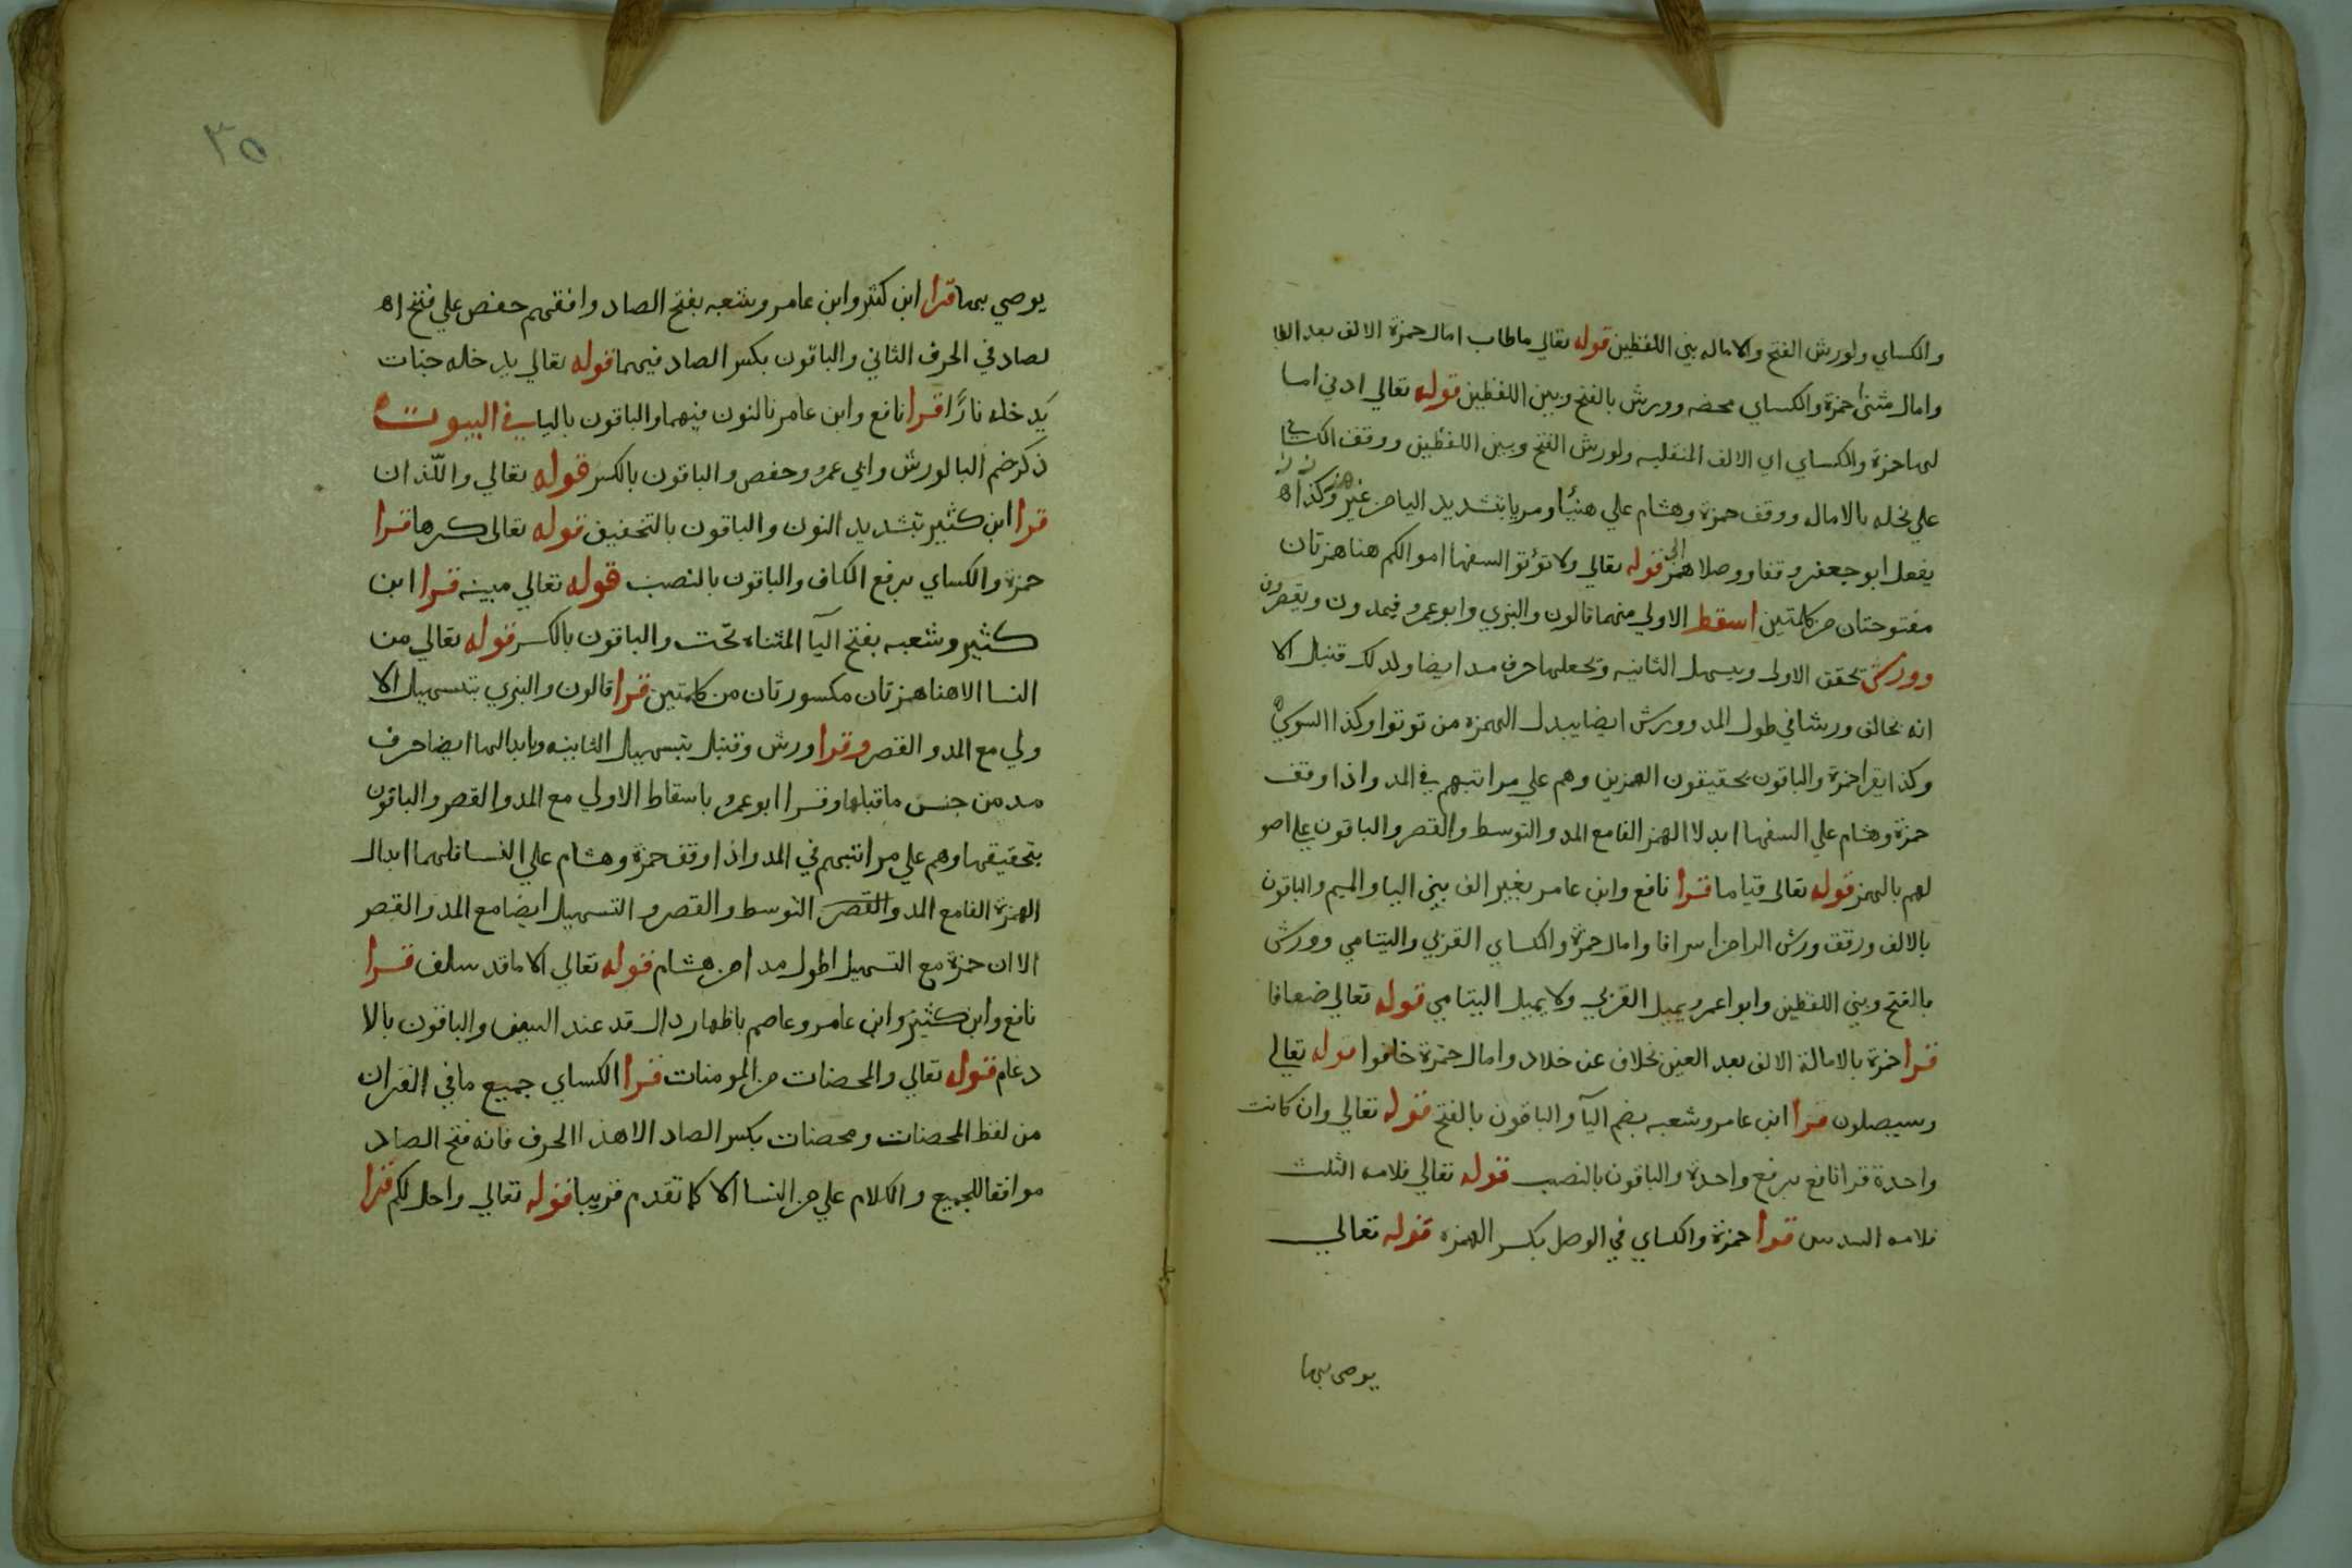 والكساي ولورش الفتح والاماله بين اللفظين قوله تعالي ماطاب امال حمزة الالف بعد الطا
وامال مثني حمزة والكساي محضه وورش بالفتح وبين اللفظين قوله تعالي ادني اما
لها حمزة والكساي اي الالف المنقلبه ولورش الفتح وبين اللفظين ووقف الكساي
علي نحله بالاماله ووقف حمزة وهشام علي هنيئا ومريا بتشديد اليا من غير همز وكذا
يفعل ابو جعفر وقفا ووصلا همز قوله تعالي ولا تؤتوا السفها اموالكم هنا همزتان
مفتوحتان من كلمتين اسقط الاولي منهما قالون والبزي وابو عمرو فيمدون ويقصرون
وورش تحقق الاولي ويسهل الثانيه وتجعلها حرف مد ايضا ولذلك قنبل الا
انه يخالف ورشا في طول المد وورش ايضا يبدل الهمزه من توتوا وكذا السوسي
وكذا يقرا حمزة والباقون بحقيقون الهمزين وهم علي مراتبهم في المد واذا وقف
حمزة وهشام علي السفها ابدلا الهمز الفا مع المد والتوسط والقصر والباقون علي اصو
لهم بالهمز قوله تعالي قياما قرا نافع وابن عامر بغير الف بين اليا والميم والباقون
بالالف ورقق ورش الرا من اسرافا وامال حمزة والكساي القربي واليتامي وورش
بالفتح وبين اللفظين وابو اعمرو يميل القربي ولا يميل اليتامي قوله تعالي ضعافا
قرا حمزة بالامالة الالف بعد العين بخلاف عن خلاد وامال حمزة خافوا قوله تعالي
وسيصلون قرا ابن عامر وشعبه بضم اليآ والباقون بالفتح قوله تعالي وان كانت
واحدة قرا نافع برفع واحدة والباقون بالنصب قوله تعالي فلامه الثلث
فلامه السدس قرا حمزة والكساي في الوصل بكسر الهمزه قوله تعالي
يوصي بها
٣٥
يوصي بها قرا ابن كثير وابن عامر وشعبه بفتح الصاد وافقهم حفص علي فتح ا
لصاد في الحرف الثاني والباقون بكسر الصاد فيهما قوله تعالي يدخله جنات
يدخله نارًا قرا نافع وابن عامر بالنون فيهما والباقون باليا في البيوت
ذكر ضم البا لورش وابي عمرو وحفص والباقون بالكسر قوله تعالي واللّذان
قرا ابن كثير بتشديد النون والباقون بالتخفيف قوله تعالي كرها قرا
حمزة والكساي برفع الكاف والباقون بالنصب قوله تعالي مبينه قرا ابن
كثير وشعبه بفتح اليآ المثناه تحت والباقون بالكسر قوله تعالي من
النسا الا هنا همزتان مكسورتان من كلمتين قرا قالون والبزي بتسهيل الا
ولي مع المد والقصر وقرا ورش وقنبل بتسهيل الثانيه وبابدالها ايضا حرف
مد من جنس ما قبلها وقرا ابو عمرو باسقاط الاولي مع المد والقصر والباقون
بتحقيقها وهم علي مراتبهم في المد واذا وقف حمزة وهشام علي النسا فلهما ابدال
الهمزة الفا مع المد والقصر التوسط والقصر والتسهيل ايضا مع المد والقصر
الا ان حمزة مع التسهيل اطول مدا من هشام قوله تعالي الا ما قد سلف قرا
نافع وابن كثير وابن عامر وعاصم باظهار دال قد عند السين والباقون بالا
دغام قوله تعالي والمحصنات من المومنات قرا الكساي جميع ما في القران
من لفظ المحصنات ومحصنات بكسر الصاد الا هذا الحرف فانه فتح الصاد
موافقا للجميع والكلام علي من النسا الا كما تقدم قريبا قوله تعالي واحل لكم قرا